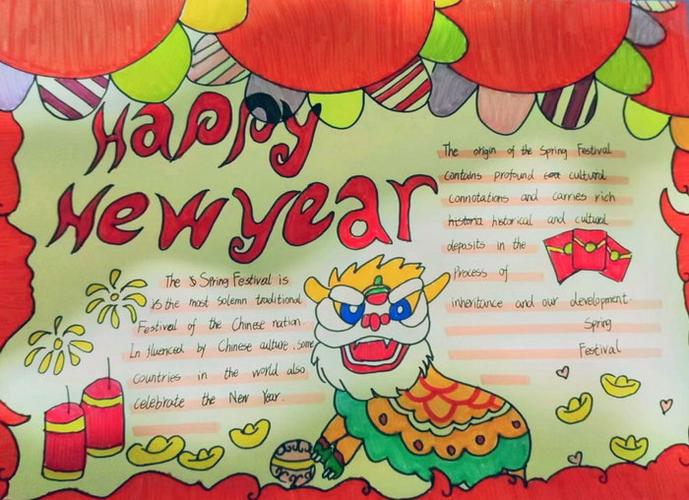 Happy
New year
The S Spring Festival is
is the most solemn traditional
Festival of the Chinese nation
Influenced by Chinese culture, some
countries in the world also
celebrate the New Year.
The origin of the Spring Festival
contains profound cultural
connotations and carries rich
historia historical and cultural
deposits in the
Process of
inheritance and our development.
Spring
Festival